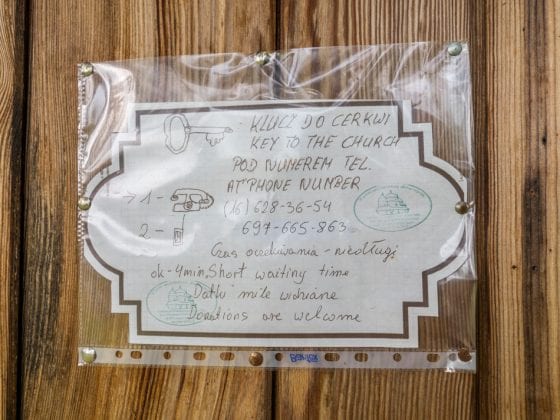 - KLUCZ DO CERKWI
KEY TO THE CHURCH
POD NUMEREM TEL.
AT PHONE NUMBER
1 - (16) 628-36-54
2 - 697-665-863
Czas oczekiwania - niedługi
ok - 4 min, Short waiting time
Datki mile widziane
Donations are welcome